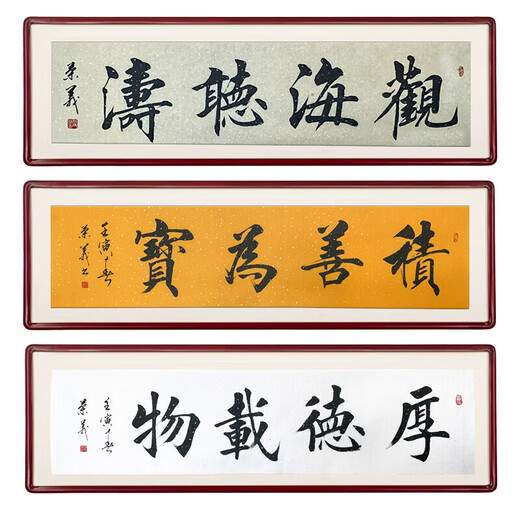 觀海聽濤
荣義
積善為寶
壬寅
荣義
厚德載物
壬寅
荣義